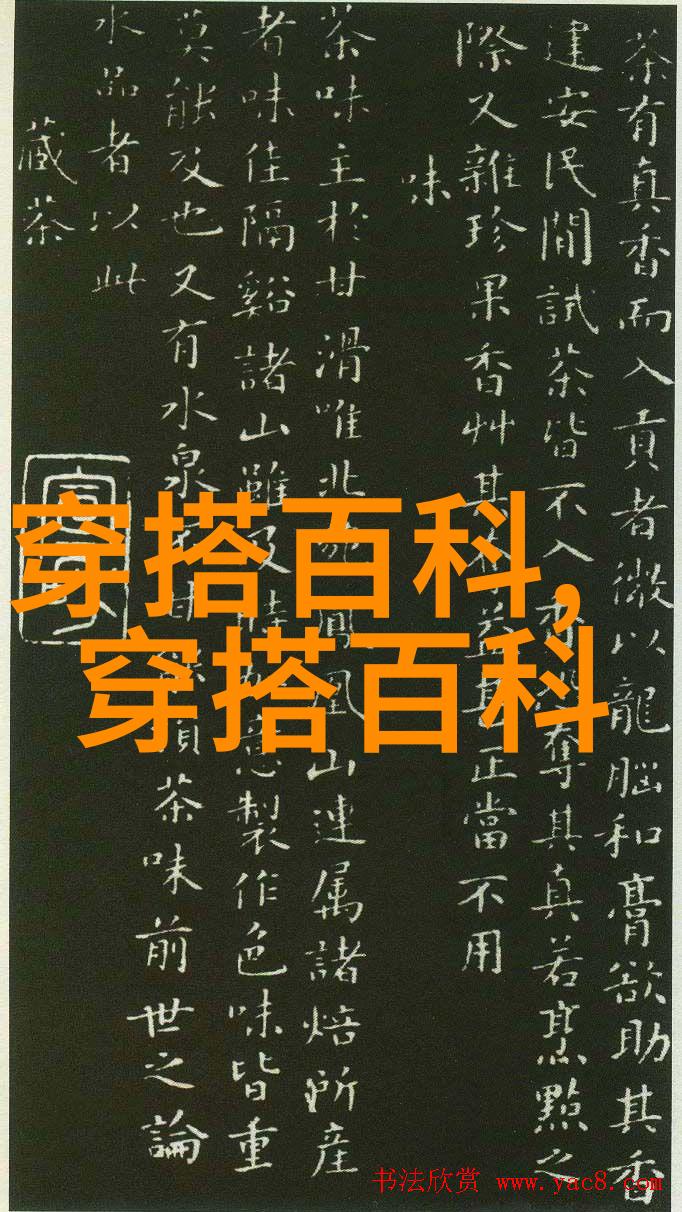 茶有真香而入貢者微以龍腦和膏欲助其香
建安民間試茶皆不入香恐奪其真若烹點之
際又雜珍果香艸其奪益甚正當不用
味
茶味主於甘滑唯北苑鳳凰山連屬諸焙所産
者味佳隔谿諸山雖及時加意製作色味皆重
莫能及也又有水泉不甘能損茶味前世之論
水品者以此
藏茶
穿搭百科,
穿搭百科
书法欣赏 www.yac8.com